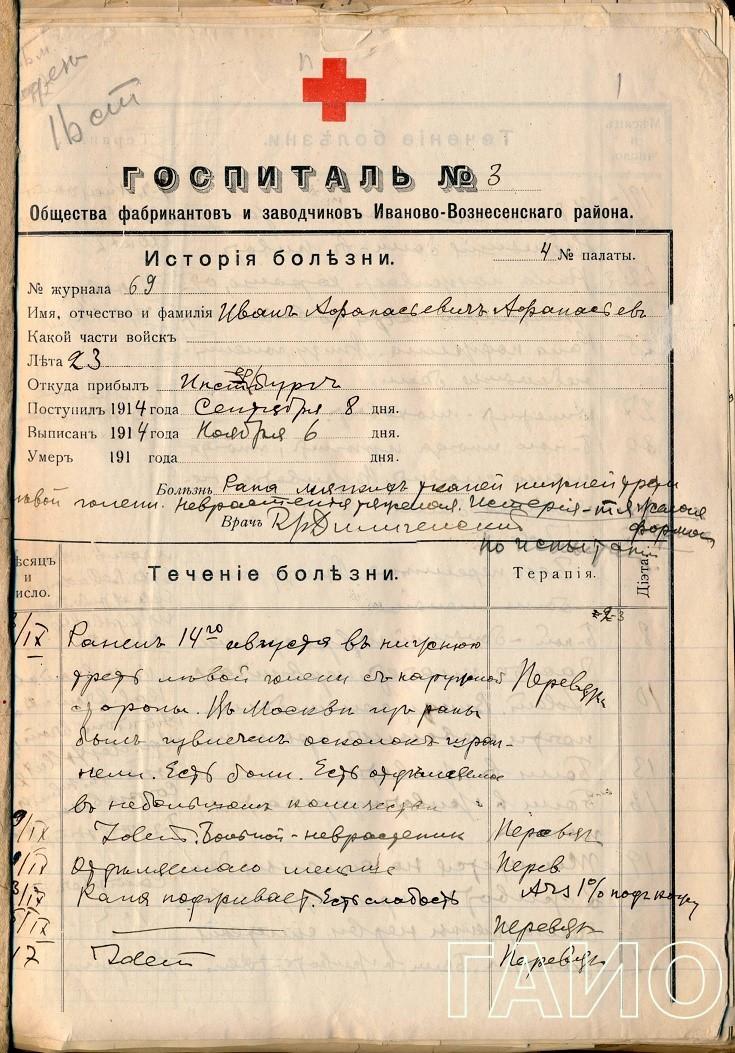 1
ГОСПИТАЛЬ № 3
Общества фабрикантовъ и заводчиковъ Иваново-Вознесенскаго района.
Исторія болѣзни.
4 № палаты.
№ журнала 69
Имя, отчество и фамилія Иванъ Афанасьевичъ Афанасьевъ
Какой части войскъ
Лѣта 23
Откуда прибылъ
Поступилъ 1914 года Сентября 8 дня.
Выписан 1914 года Ноября 6 дня.
Умеръ 191 года дня.
Болѣзнь Рана мягкихъ тканей нижней трети
лѣвой голени. Неврастенія тяжелая. Истерія - тяжелая
Врачъ форма
Мѣсяцъ и число.
Теченіе болѣзни.
Терапія.
Діэта.
/IX Раненъ 14го августа въ нижнюю
треть лѣвой голени съ наружной Перевязк
стороны. Въ Москвѣ изъ раны
былъ извлеченъ осколокъ шрап-
нели. Есть боли. Есть отдѣляемое
въ небольшомъ количествѣ
/IX Idem. Больной - неврастеникъ Перевязк
/IX Отдѣляемаго меньше Перев.
/IX Рана подживает. Есть слабость Ars 1% подъ кожу
/IX Перевязк
17 Idem Перевязк
ГАИО